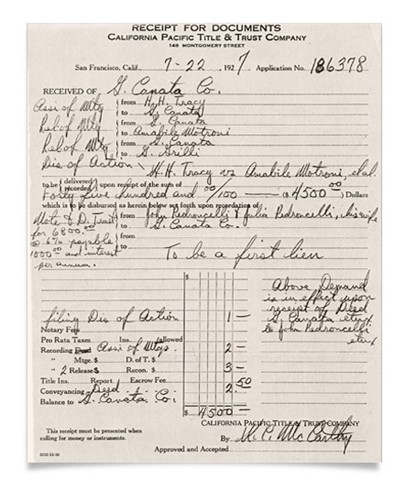 RECEIPT FOR DOCUMENTS
CALIFORNIA PACIFIC TITLE & TRUST COMPANY
148 MONTGOMERY STREET
San Francisco, Calif. 7-22 1927 Application No. 186378
RECEIVED OF G. Canata Co.
Assi of Mtg from H.H. Tracy
to G. Canata
Rel of Mtg from G. Canata
to Anabile Motroni
Rel of Mtg from G. Canata
to G. Grilli
Dis of Action H.H. Tracy vs Anabile Motroni, et al.
to be delivered recorded upon receipt of the sum of
Forty five hundred and 00/100 ($4500.00) Dollars
which is to be disbursed as herein below set forth upon recordation of
Note & D. Trust from John Pedroncelli & Julia Pedroncelli, his wife
for 6800.00 to G. Canata Co.
@ 6% payable from
1000.00 and interest to To be a first lien
per annum.
$
Above Demand
is in effect upon
receipt of Deed
G. Canata etux
to John Pedroncelli
etux
filing Dis of Action 1 —
Notary Fee
Pro Rata Taxes Ins. allowed
Recording Deed Assi of Mtgs 2 —
" Mtge. $ D. of T. $
" 2 Release $ Recon. $ 3 —
Title Ins. Report Escrow Fee
Conveyancing Deed 2.50
Balance to G. Canata Co.
$ 4500 —
CALIFORNIA PACIFIC TITLE & TRUST COMPANY
This receipt must be presented when
calling for money or instruments.
By W. P. McCarthy
Approved and Accepted